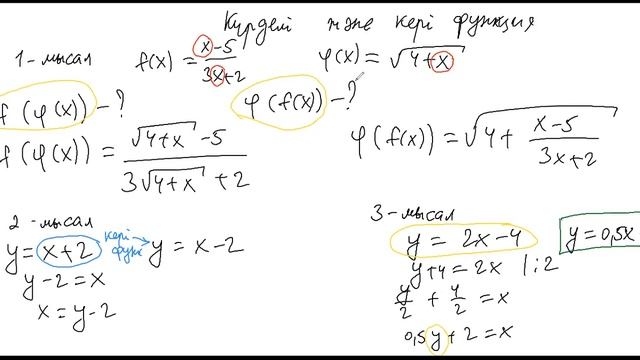 Күрделі және кері функция
1-мысал f(x) = x-5/3x+2 φ(x) = √4+x
f(φ(x)) - ? φ(f(x)) - ?
f(φ(x)) = √4+x - 5/3√4+x + 2 φ(f(x)) = √4 + x-5/3x+2
2-мысал
y = x+2 кері функ y = x-2
y-2 = x
x = y-2
3-мысал
y = 2x-4 y = 0,5x
y+4 = 2x | : 2
y/2 + 4/2 = x
0,5y + 2 = x